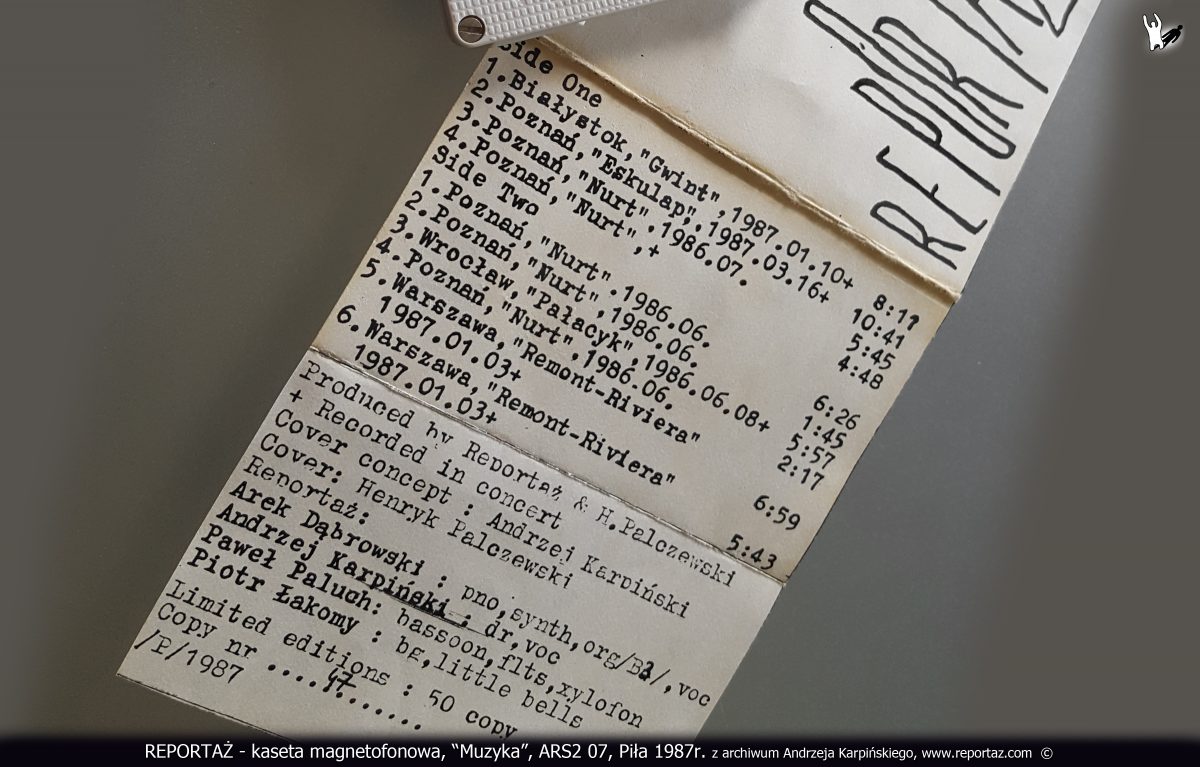 REPORTAŻ
Side One
1.Białystok,"Gwint",1987.01.10+ 8:11
2.Poznań,"Eskulap",1987.03.16+ 10:41
3.Poznań,"Nurt".1986.07. 5:45
4.Poznań,"Nurt",+ 4:48
Side Two
1.Poznań,"Nurt".1986.06. 6:26
2.Poznań,"Nurt",1986.06. 1:45
3.Wrocław,"Pałacyk",1986.06.08+ 5:57
4.Poznań,"Nurt",1986.06. 2:17
5.Warszawa,"Remont-Riviera"
1987.01.03+ 6:59
6.Warszawa,"Remont-Riviera"
1987.01.03+ 5:43
Produced by Reportaż & H.Palczewski
+ Recorded in concert
Cover concept : Andrzej Karpiński
Cover: Henryk Palczewski
Reportaż:
Arek Dąbrowski : pno,synth,org/B3/,voc
Andrzej Karpiński : dr,voc
Paweł Paluch: bassoon,flts,xylofon
Piotr Łakomy : bg,little bells
Limited editions : 50 copy
Copy nr ....47.......
/P/1987
REPORTAŻ - kaseta magnetofonowa, “Muzyka”, ARS2 07, Piła 1987r. z archiwum Andrzeja Karpińskiego, www.reportaz.com ©